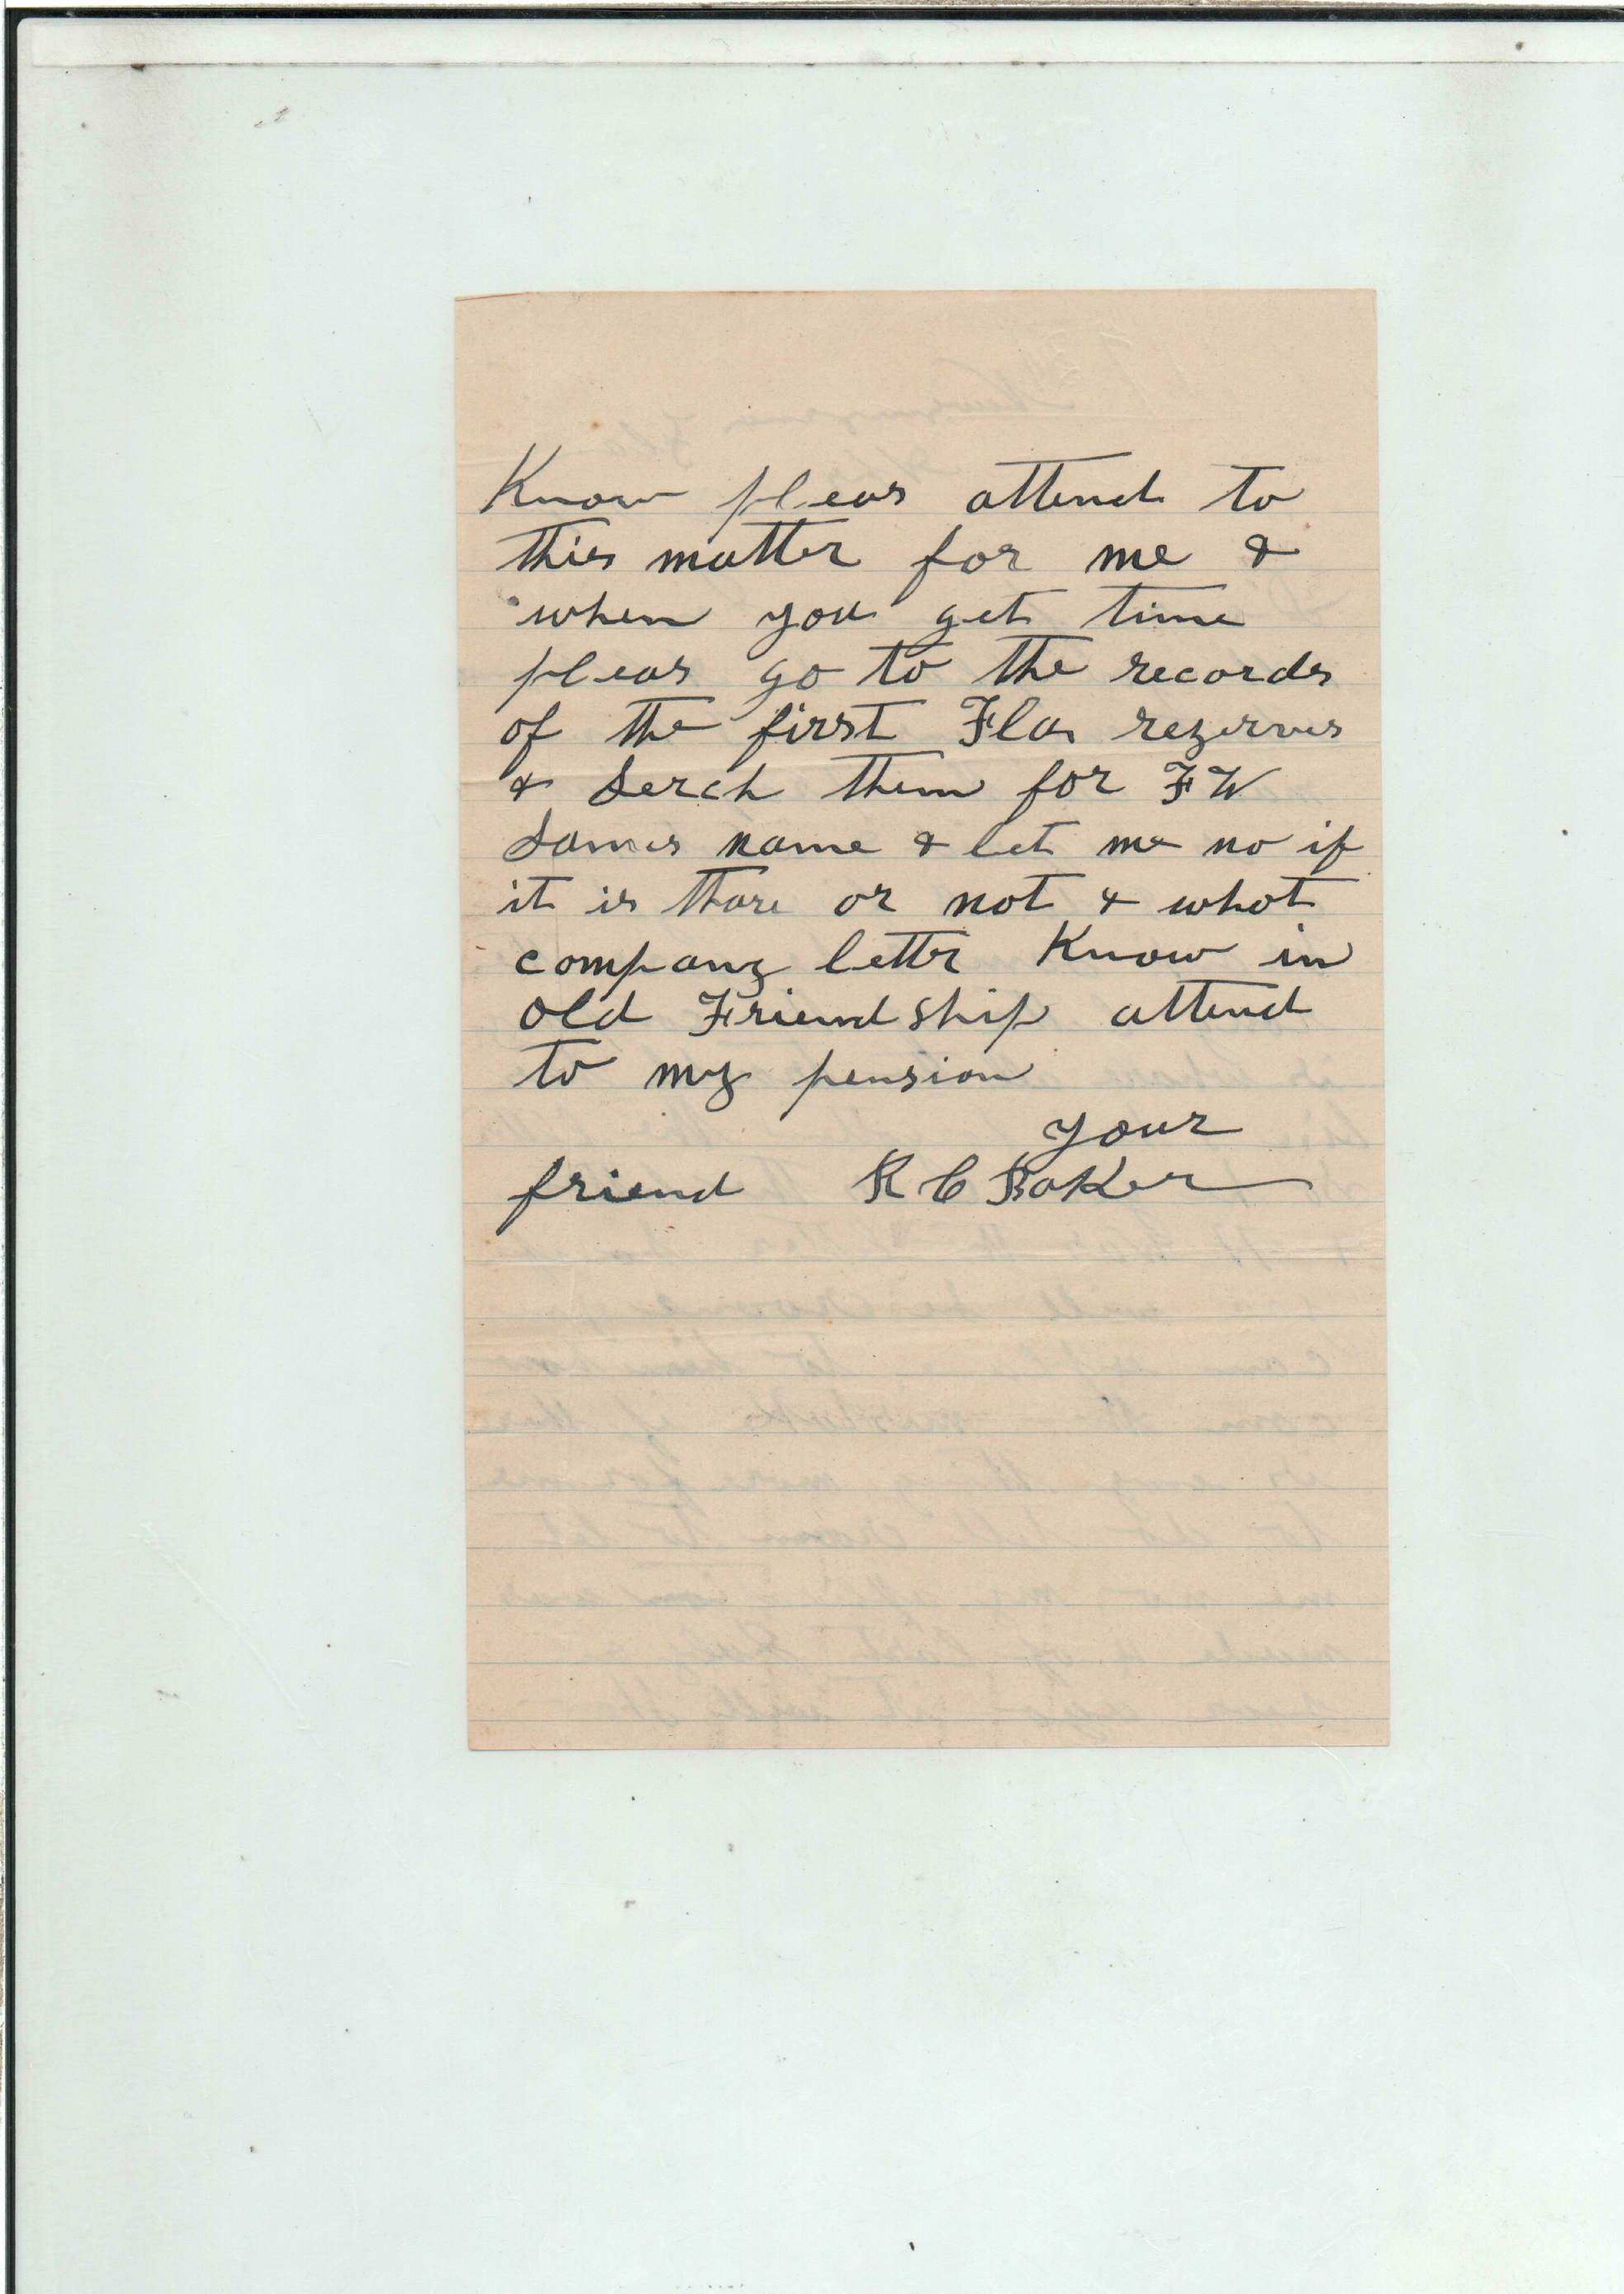 Know pleas attend to
this matter for me &
when you get time
pleas go to the records
of the first Fla rezerves
& Serch them for F W
name & let me no if
it is thare or not & what
company letter Know in
old Friend ship attend
to my pension
your
friend R C Baker